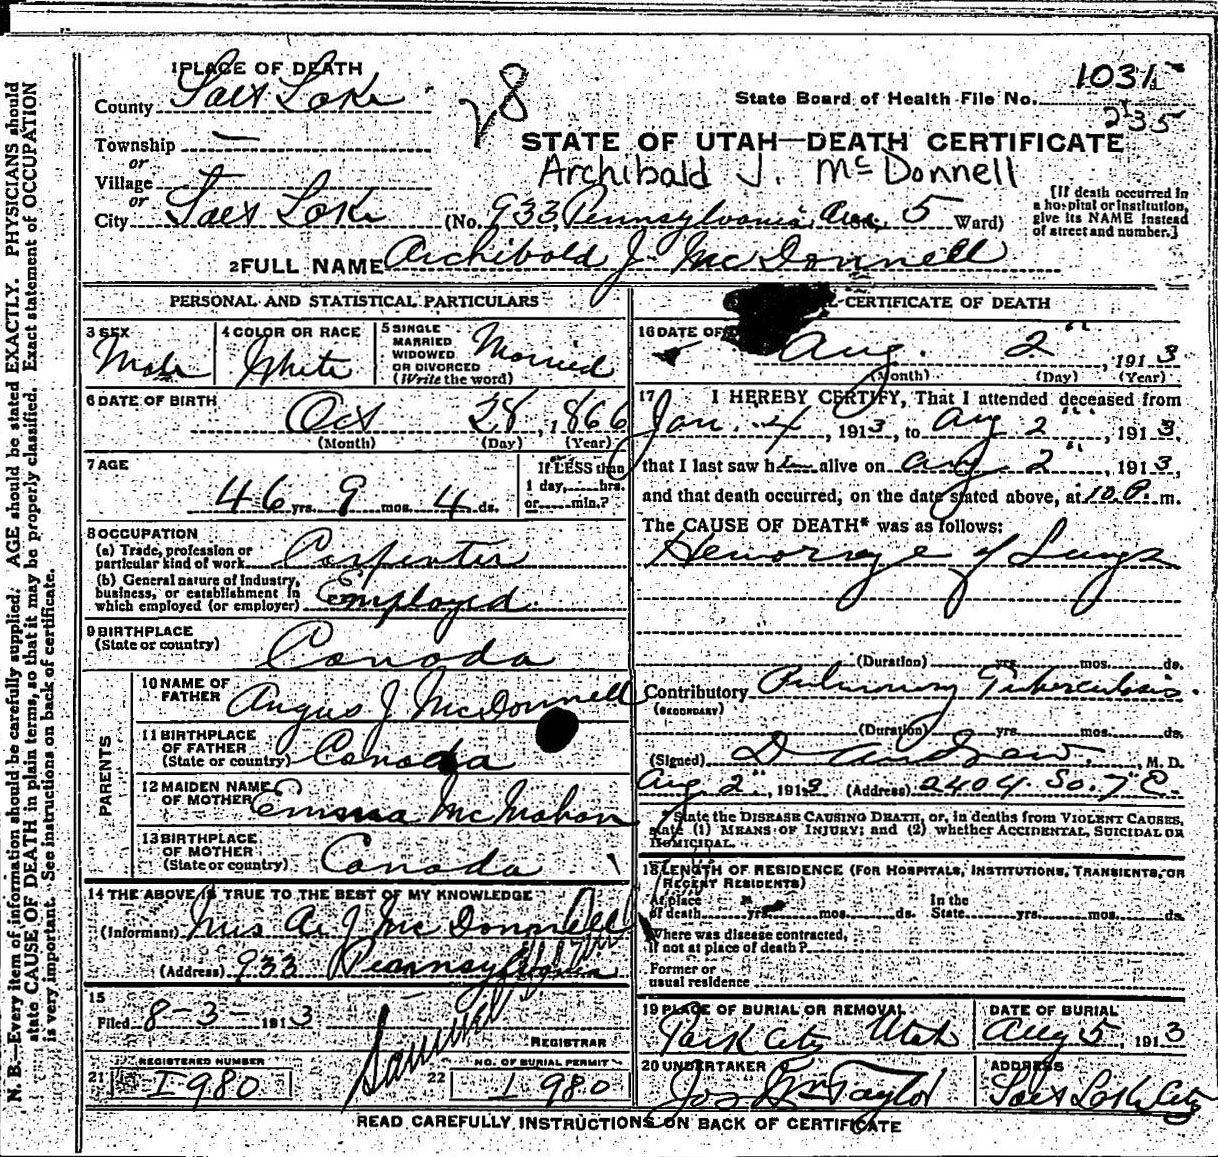 1 PLACE OF DEATH
County Salt Lake
Township —
or
Village
or
City Salt Lake
28
1031
State Board of Health File No.
235
STATE OF UTAH—DEATH CERTIFICATE
Archibald J. McDonnell
(No. 933, Pennsylvania Ave. 5 Ward)
[If death occurred in
a hospital or institution,
give its NAME instead
of street and number.]
2 FULL NAME Archibold J McDonnell
PERSONAL AND STATISTICAL PARTICULARS
3 SEX
Male
4 COLOR OR RACE
White
5 SINGLE
MARRIED
WIDOWED
OR DIVORCED
(Write the word)
Married
6 DATE OF BIRTH
Oct 28, 1866
(Month) (Day) (Year)
7 AGE
46 yrs. 9 mos. 4 ds.
If LESS than
1 day,......hrs.
or......min.?
8 OCCUPATION
(a) Trade, profession or
particular kind of work Carpenter
(b) General nature of industry,
business, or establishment in
which employed (or employer) Employed.
9 BIRTHPLACE
(State or country)
Canada
PARENTS
10 NAME OF
FATHER
Angus J McDonnell
11 BIRTHPLACE
OF FATHER
(State or country) Canada
12 MAIDEN NAME
OF MOTHER Emma McMahon
13 BIRTHPLACE
OF MOTHER
(State or country) Canada
14 THE ABOVE IS TRUE TO THE BEST OF MY KNOWLEDGE
(Informant) Mrs A. J McDonnell
(Address) 933 Pennsylvania
15
Filed 8-3-1913
REGISTRAR
REGISTERED NUMBER
21 I 980
NO. OF BURIAL PERMIT
22 I 980
CERTIFICATE OF DEATH
16 DATE OF
Aug. 2", 1913
(Month) (Day) (Year)
17 I HEREBY CERTIFY, That I attended deceased from
Jan. 4, 1913, to Aug 2", 1913,
that I last saw him alive on Aug 2", 1913,
and that death occurred, on the date stated above, at 10 P. m.
The CAUSE OF DEATH* was as follows:
Hemorrage of Lungs
(Duration) yrs. mos. ds.
Contributory Pulmonary Tuberculosis.
(SECONDARY)
(Duration) yrs. mos. ds.
(Signed) , M. D.
Aug 2", 1913 (Address) 2404 So. 7" E.
*State the DISEASE CAUSING DEATH, or, in deaths from VIOLENT CAUSES,
state (1) MEANS OF INJURY; and (2) whether ACCIDENTAL, SUICIDAL OR
HOMICIDAL.
18 LENGTH OF RESIDENCE (FOR HOSPITALS, INSTITUTIONS, TRANSIENTS, OR
RECENT RESIDENTS)
At place
of death yrs. mos. ds.
In the
State yrs. mos. ds.
Where was disease contracted,
if not at place of death?
Former or
usual residence
19 PLACE OF BURIAL OR REMOVAL
Park City Utah
DATE OF BURIAL
Aug 5, 1913
20 UNDERTAKER
Jos Wm Taylor
ADDRESS
Salt Lake City
READ CAREFULLY INSTRUCTIONS ON BACK OF CERTIFICATE
N. B.—Every item of information should be carefully supplied. AGE should be stated EXACTLY. PHYSICIANS should
state CAUSE OF DEATH in plain terms, so that it may be properly classified. Exact statement of OCCUPATION
is very important. See instructions on back of certificate.